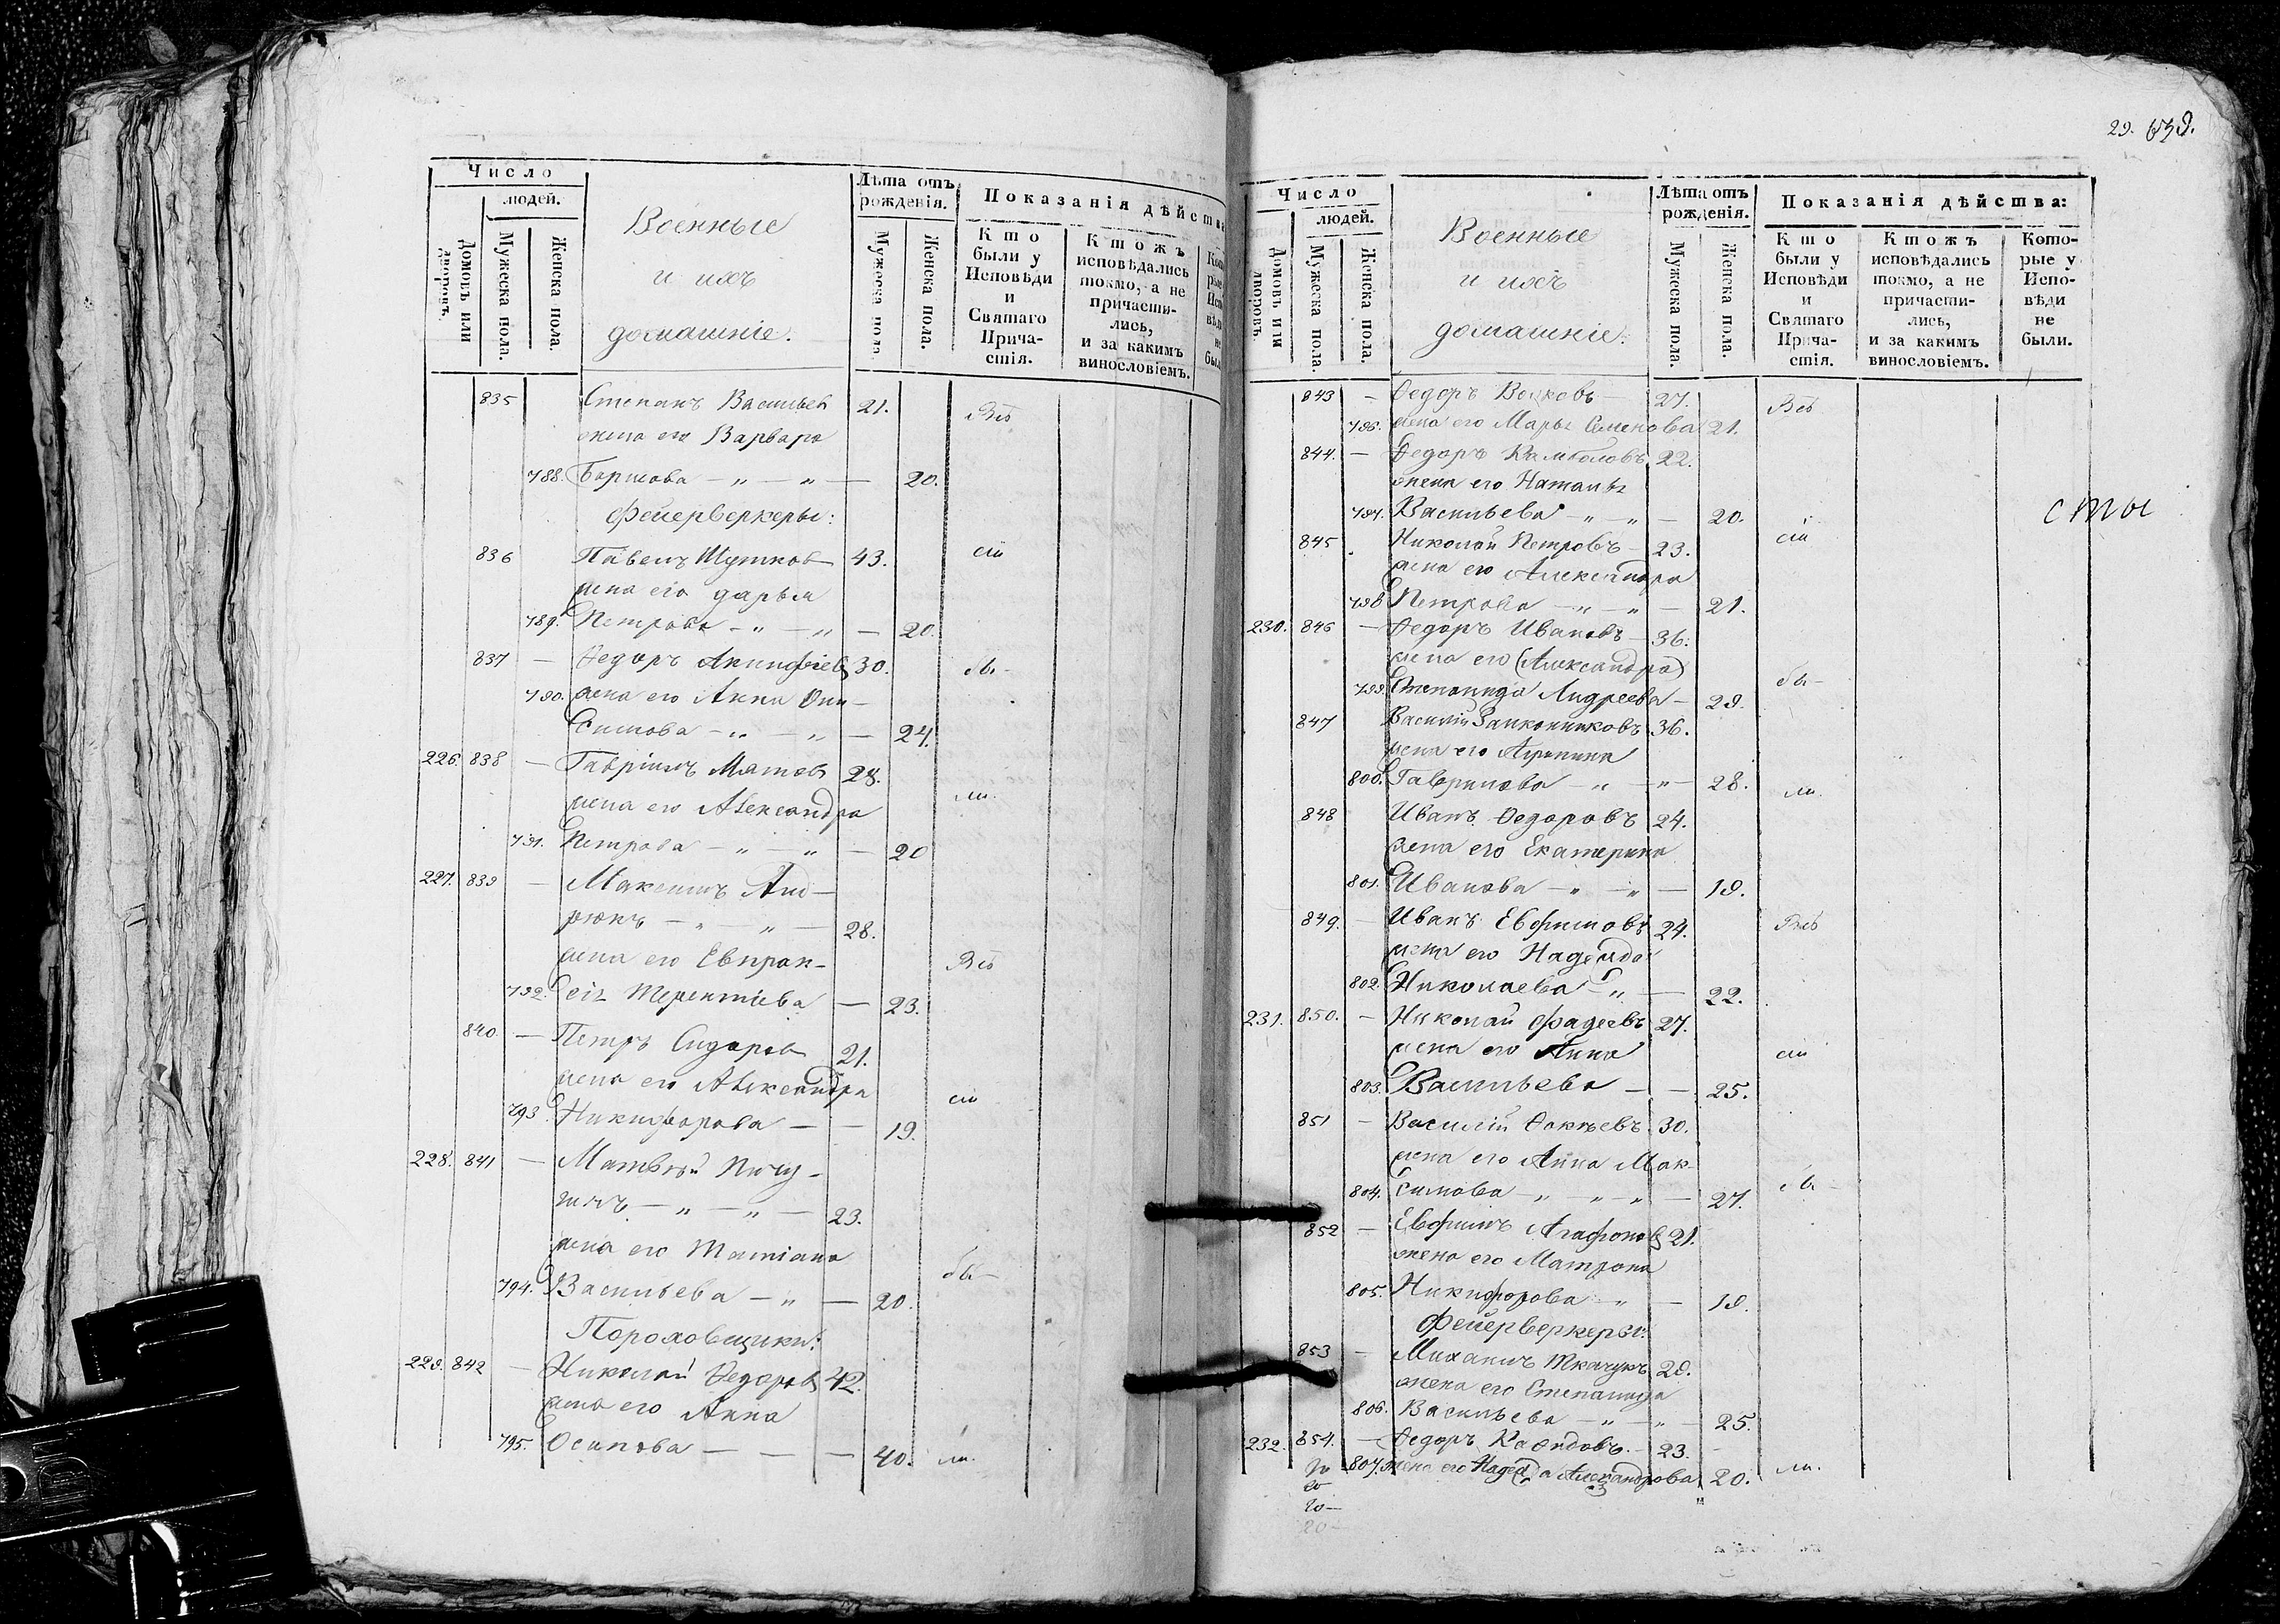 Число
людей.
Домовъ или дворовъ.
Мужеска пола.
Женска пола.
Военные
и ихъ
домашніе.
Лѣта отъ
рожденія.
Мужеска пола
Женска пола.
Показанія дѣйства
Кто
были у
Исповѣди
и
Святаго
Прича-
стія.
Ктожъ
исповѣдались
токмо, а не
причасти-
лись,
и за какимъ
винословіемъ.
835 Степанъ Васильев 21. Всѣ
жена его Варвара
788. Борисова — „ — „ — 20.
Фейерверкеры:
836 Павелъ Шутков 43.
жена его дарья
789. Петрова — „ — „ — 20.
837 — Ѳедоръ Акинфіев 30. бы-
790. жена его Анна Они-
симова — „ — „ — 24.
226. 838 — Гавріилъ 28.
жена его Александра ли.
791. Петрова — „ — „ — 20
227. 839 — Максимъ Анд-
рюкъ — „ — „ — 28.
жена его Евпрак- Всѣ
792. сія Терентіева — 23.
840. — Петръ Сидоров 21.
жена его Александра
793 Никифорова — — 19.
228. 841 — Матвѣй Пичу-
гинъ — „ — „ — 23.
жена его Татіана
794. Васильева — „ — 20. бы-
Пороховщики:
229. 842 — Николай Ѳедоров 42.
жена его Анна
795. Осипова — — — 40. ли.
29. 639.
Число
людей.
Домовъ или дворовъ.
Мужеска пола
Женска пола.
Военные
и ихъ
домашніе.
Лѣта отъ
рожденія.
Мужеска пола.
Женска пола.
Показанія дѣйства:
Кто
были у
Исповѣди
и
Святаго
Прича-
стія.
Ктожъ
исповѣдались
токмо, а не
причасти-
лись,
и за какимъ
винословіемъ.
Кото-
рые у
Испо-
вѣди
не
были.
843 — Ѳедоръ Волковъ — 27. Всѣ
796. жена его Марья Семенова 21.
844. — Ѳедоръ 22.
жена его Наталья
797. Васильева — „ — „ — 20.
845 Николай Петровъ — 23.
жена его Александра
798 Петрова — „ — „ — 21.
230. 846 — Ѳедоръ Ивановъ — 36.
жена его (Александра)
799. Степанида Андреева — 29. бы-
847 Василій 36.
жена его Агрипина
800. Гаврилова — „ — „ — 28. ли.
848 Иванъ Ѳедоровъ 24.
жена его Екатерина
801. Иванова — „ — „ — 19.
849. — Иванъ Евфимовъ 24. Всѣ
жена его Надежда
802. Николаева — „ — 22.
231. 850. — Николай Фадеевъ 27.
жена его Анна
803. Васильева — — 25.
851 — Василій Фокѣевъ 30.
жена его Анна Мак-
804. симова — „ — „ — „ — 27. бы-
852 — Евфимъ Агафонов 21.
жена его Матрона
805. Никифорова — „ — 19.
Фейерверкеры:
853 — Михаилъ Ткачукъ 29.
жена его Степанида
806. Васильева — „ — „ — 25.
232. 854. — Ѳедоръ 23.
807. жена его Надежда Александрова 20. ли.
20
20—
20—